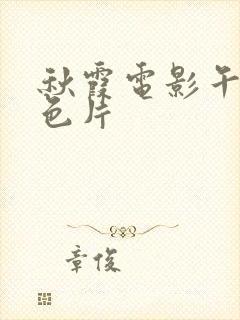 秋霞電影午
色片
章俊